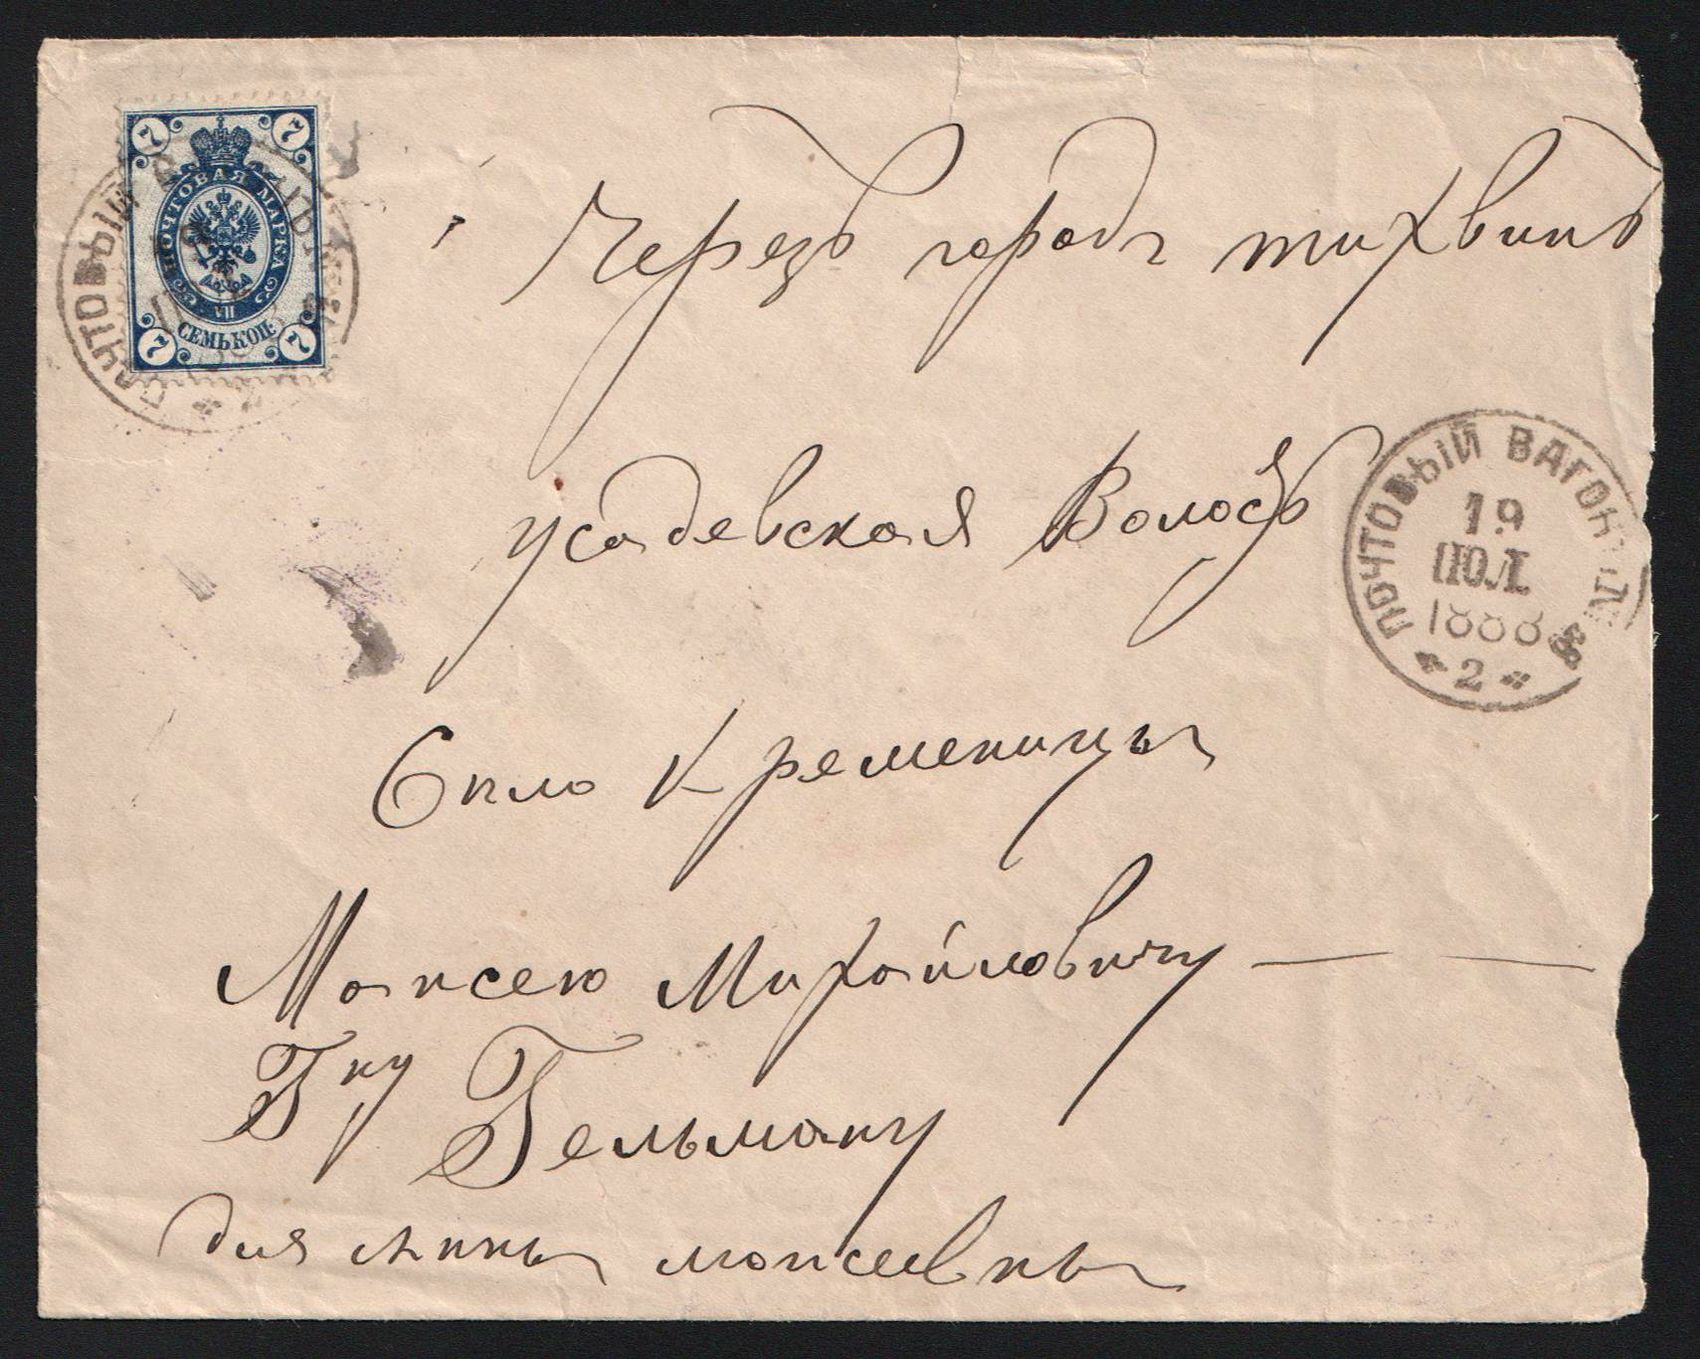 7 7
ПОЧТОВАЯ МАРКА
VII
СЕМЬ КОП.
7 7
Черезъ городъ тихвинъ
усадевская Волость
ПОЧТОВЫЙ ВАГОНЪ №
19
ІЮЛ
1888
2
Село Кременицы
Моисею Михайловичу
Гну Гельману
для Анны моисеевны